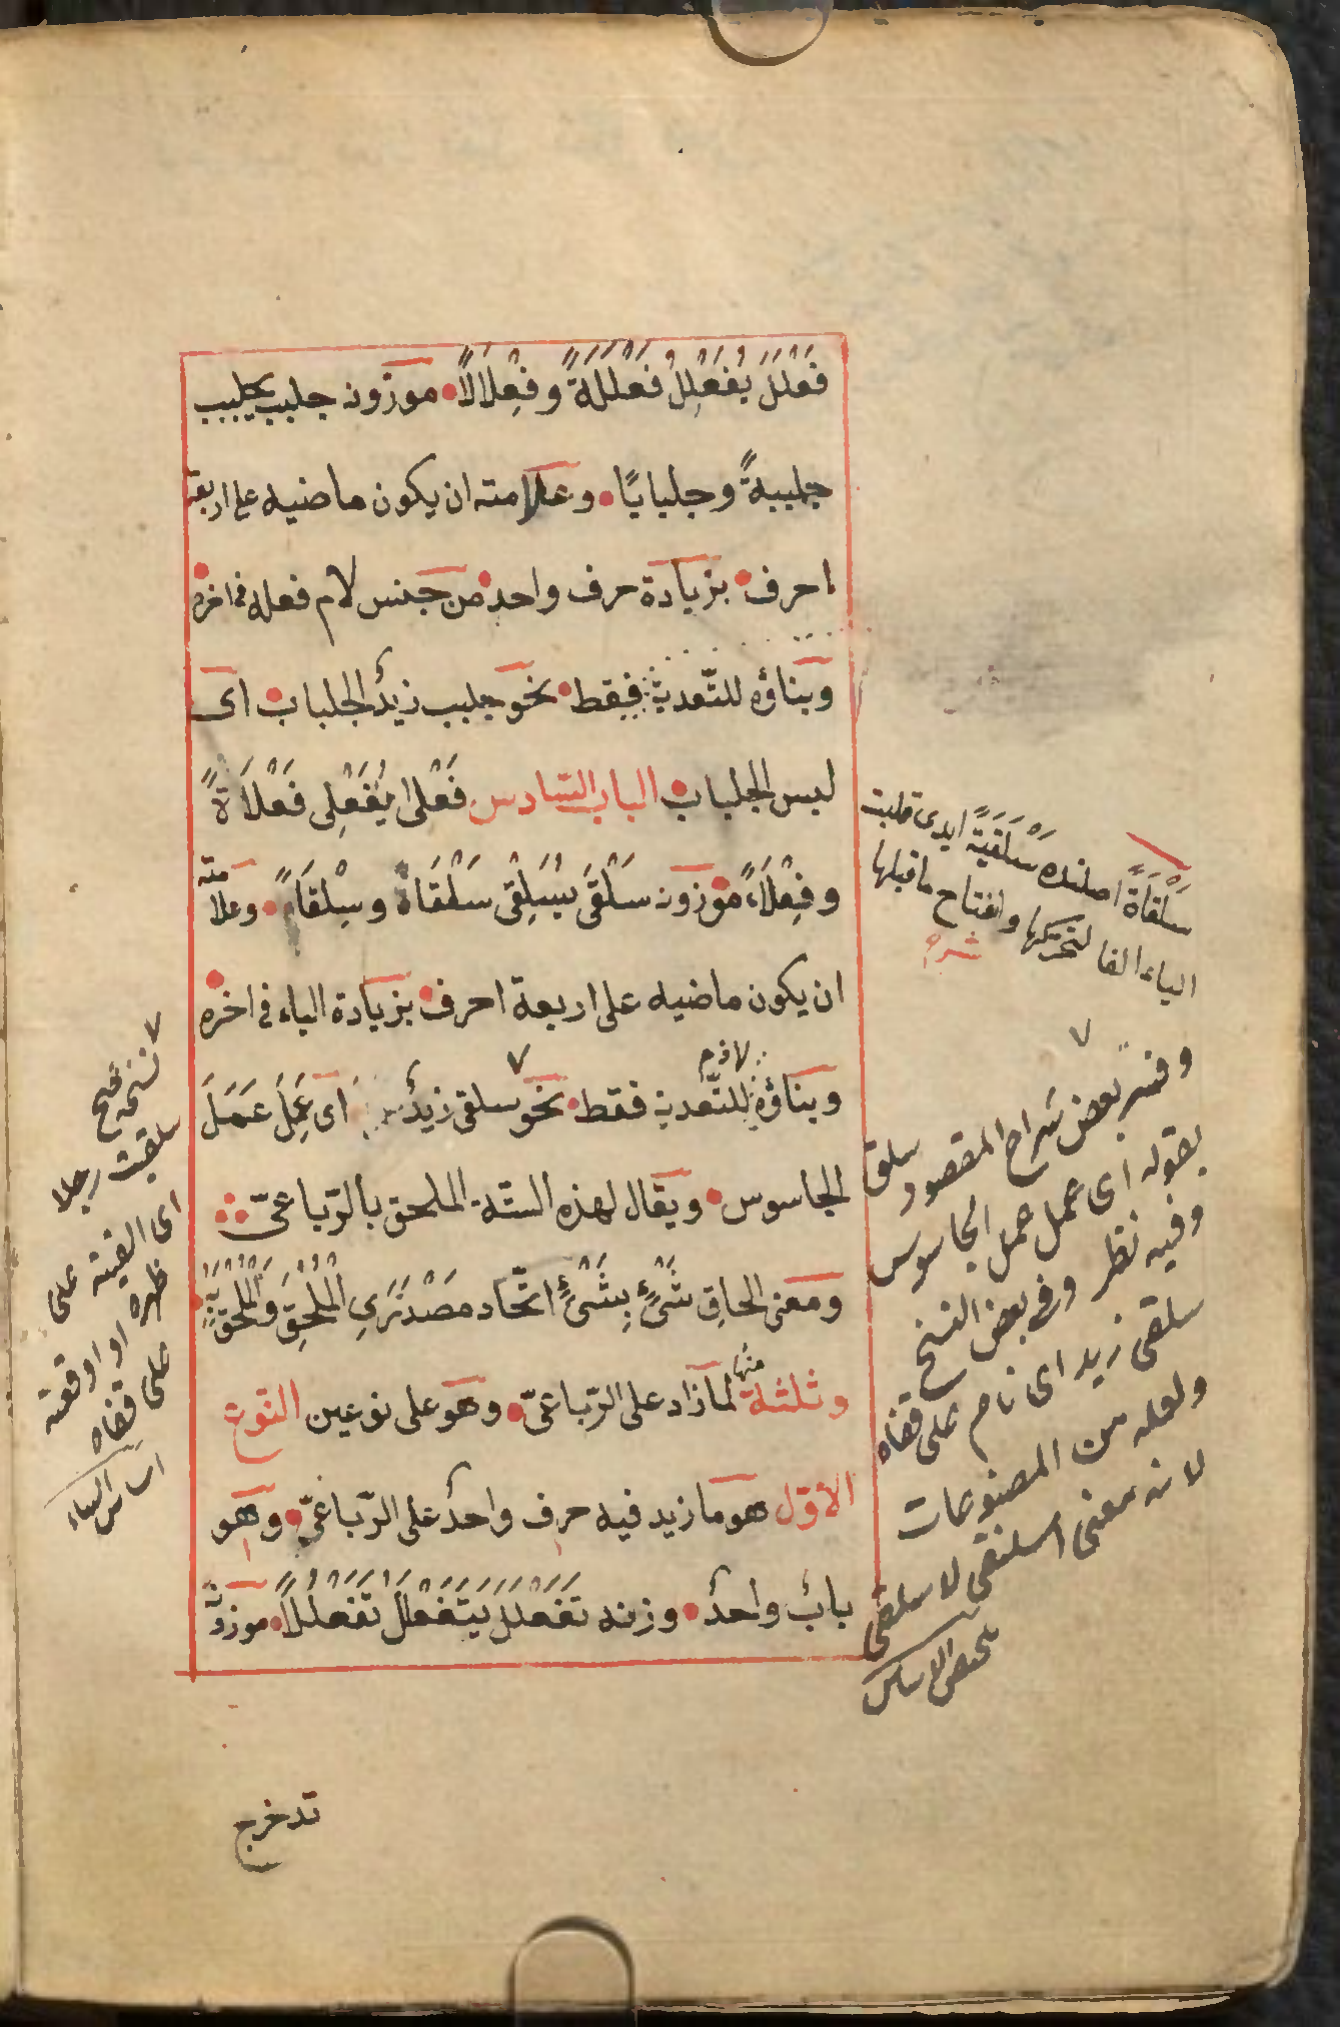 فَعْلَلَ يُفَعْلِلُ فَعْلَلَةً وفِعْلَالًا موزونه جلبب يجلبب
جلببةً وجلبابًا وعلامته ان يكون ماضيه على اربعة
احرف بزيادة حرف واحد من جنس لام فعله فى اخره
وبناؤه للتّعدية فقط نحو جلبب زيدٌ الجلباب اى
لبس الجلباب الباب السّادس فَعْلى يُفَعْلِى فَعْلَاةً
وفِعْلَاءً موزونه سَلْقَى يُسَلِقْى سَلْقَاةً وسِلْقَاءً وعلامته
ان يكون ماضيه على اربعة احرف بزيادة الياء فى اخره
لازم
وبناؤه للتّعدية فقط نحو سلقى زيدٌ اى عَمِلَ عَمَلَ
الجاسوس ويقال لهذه السّتّة الملحق بالرّباعىّ
ومعنى الحاق شَىْءٍ بِشَىْءٍ اتّحاد مَصْدَرَىِ الْمُلْحِقَ وَالْمُلْحَقِ بِهِ
وثلثة منها لما زاد على الرّباعىّ وهو على نوعين النّوع
الاوّل هو ما زيد فيه حرف واحدٌ على الرّباعىّ وهو
بابٌ واحدٌ وزنه تَفَعْلَلَ يَتَفَعْلَلُ تَفَعْلُلًا موزونه
تدخرج
سَلْقَاةً اصلنده سَلْقَيَةً ايدى قلبت
الياء الفا لتحركها وانفتاح ما قبلها
شرح
وفسر بعض شراح المقصود سلقى
بقوله اى عمل عمل الجاسوس
وفيه نظر وفى بعض النسخ
سلقى زيد اى نام على قفاه
ولعله من المصنوعات
لانه معنى اسلنقى لا سلقى
ملخص الاساس
نسخه صح
سلقيت رجلا
اى القيته على
ظهره او اوقعته
على قفاه
اساس البناء